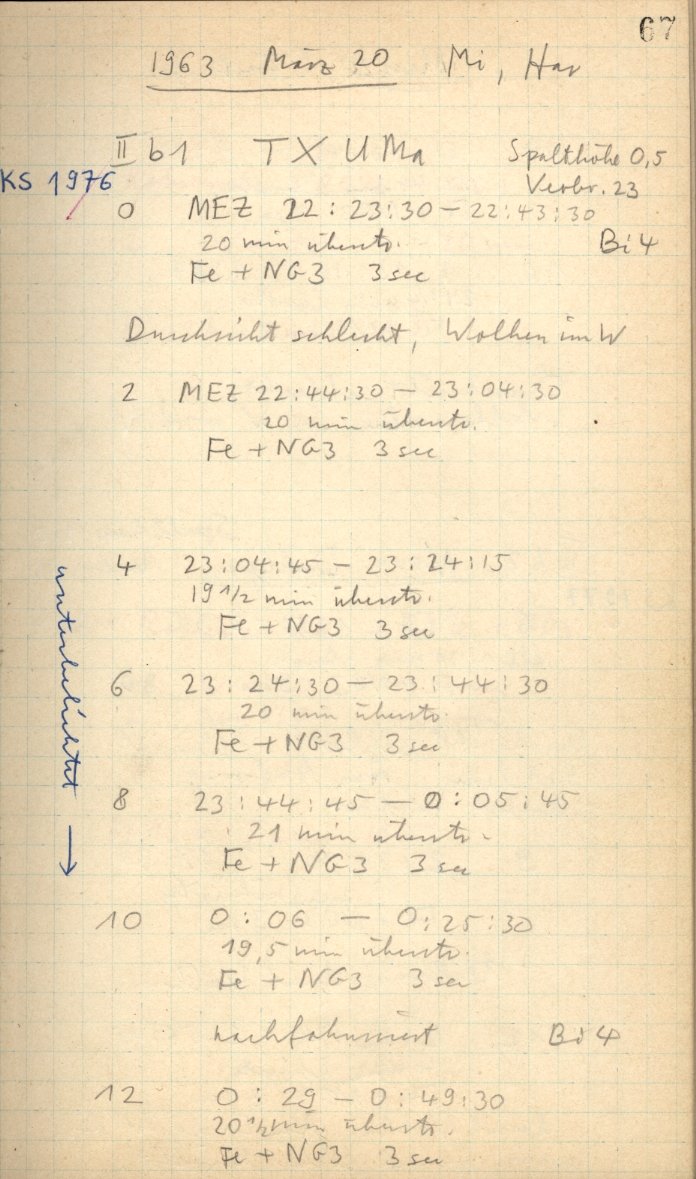 67
1963 März 20 Mi, Har
II b1 TX UMa Spalthöhe 0,5
KS 1976 Verbr. 23
0 MEZ 22:23:30 – 22:43:30
20 min überstr. Bi 4
Fe + NG3 3 sec
Durchsicht schlecht, Wolken im W
2 MEZ 22:44:30 – 23:04:30
20 min überstr.
Fe + NG3 3 sec
4 23:04:45 – 23:24:15
19 1/2 min überstr.
Fe + NG3 3 sec
6 23:24:30 – 23:44:30
20 min überstr.
Fe + NG3 3 sec
unterbelichtet →
8 23:44:45 – 0:05:45
21 min überstr.
Fe + NG3 3 sec
10 0:06 – 0:25:30
19,5 min überstr.
Fe + NG3 3 sec
nachfokussiert Bi 4
12 0:29 – 0:49:30
20 1/2 min überstr.
Fe + NG3 3 sec